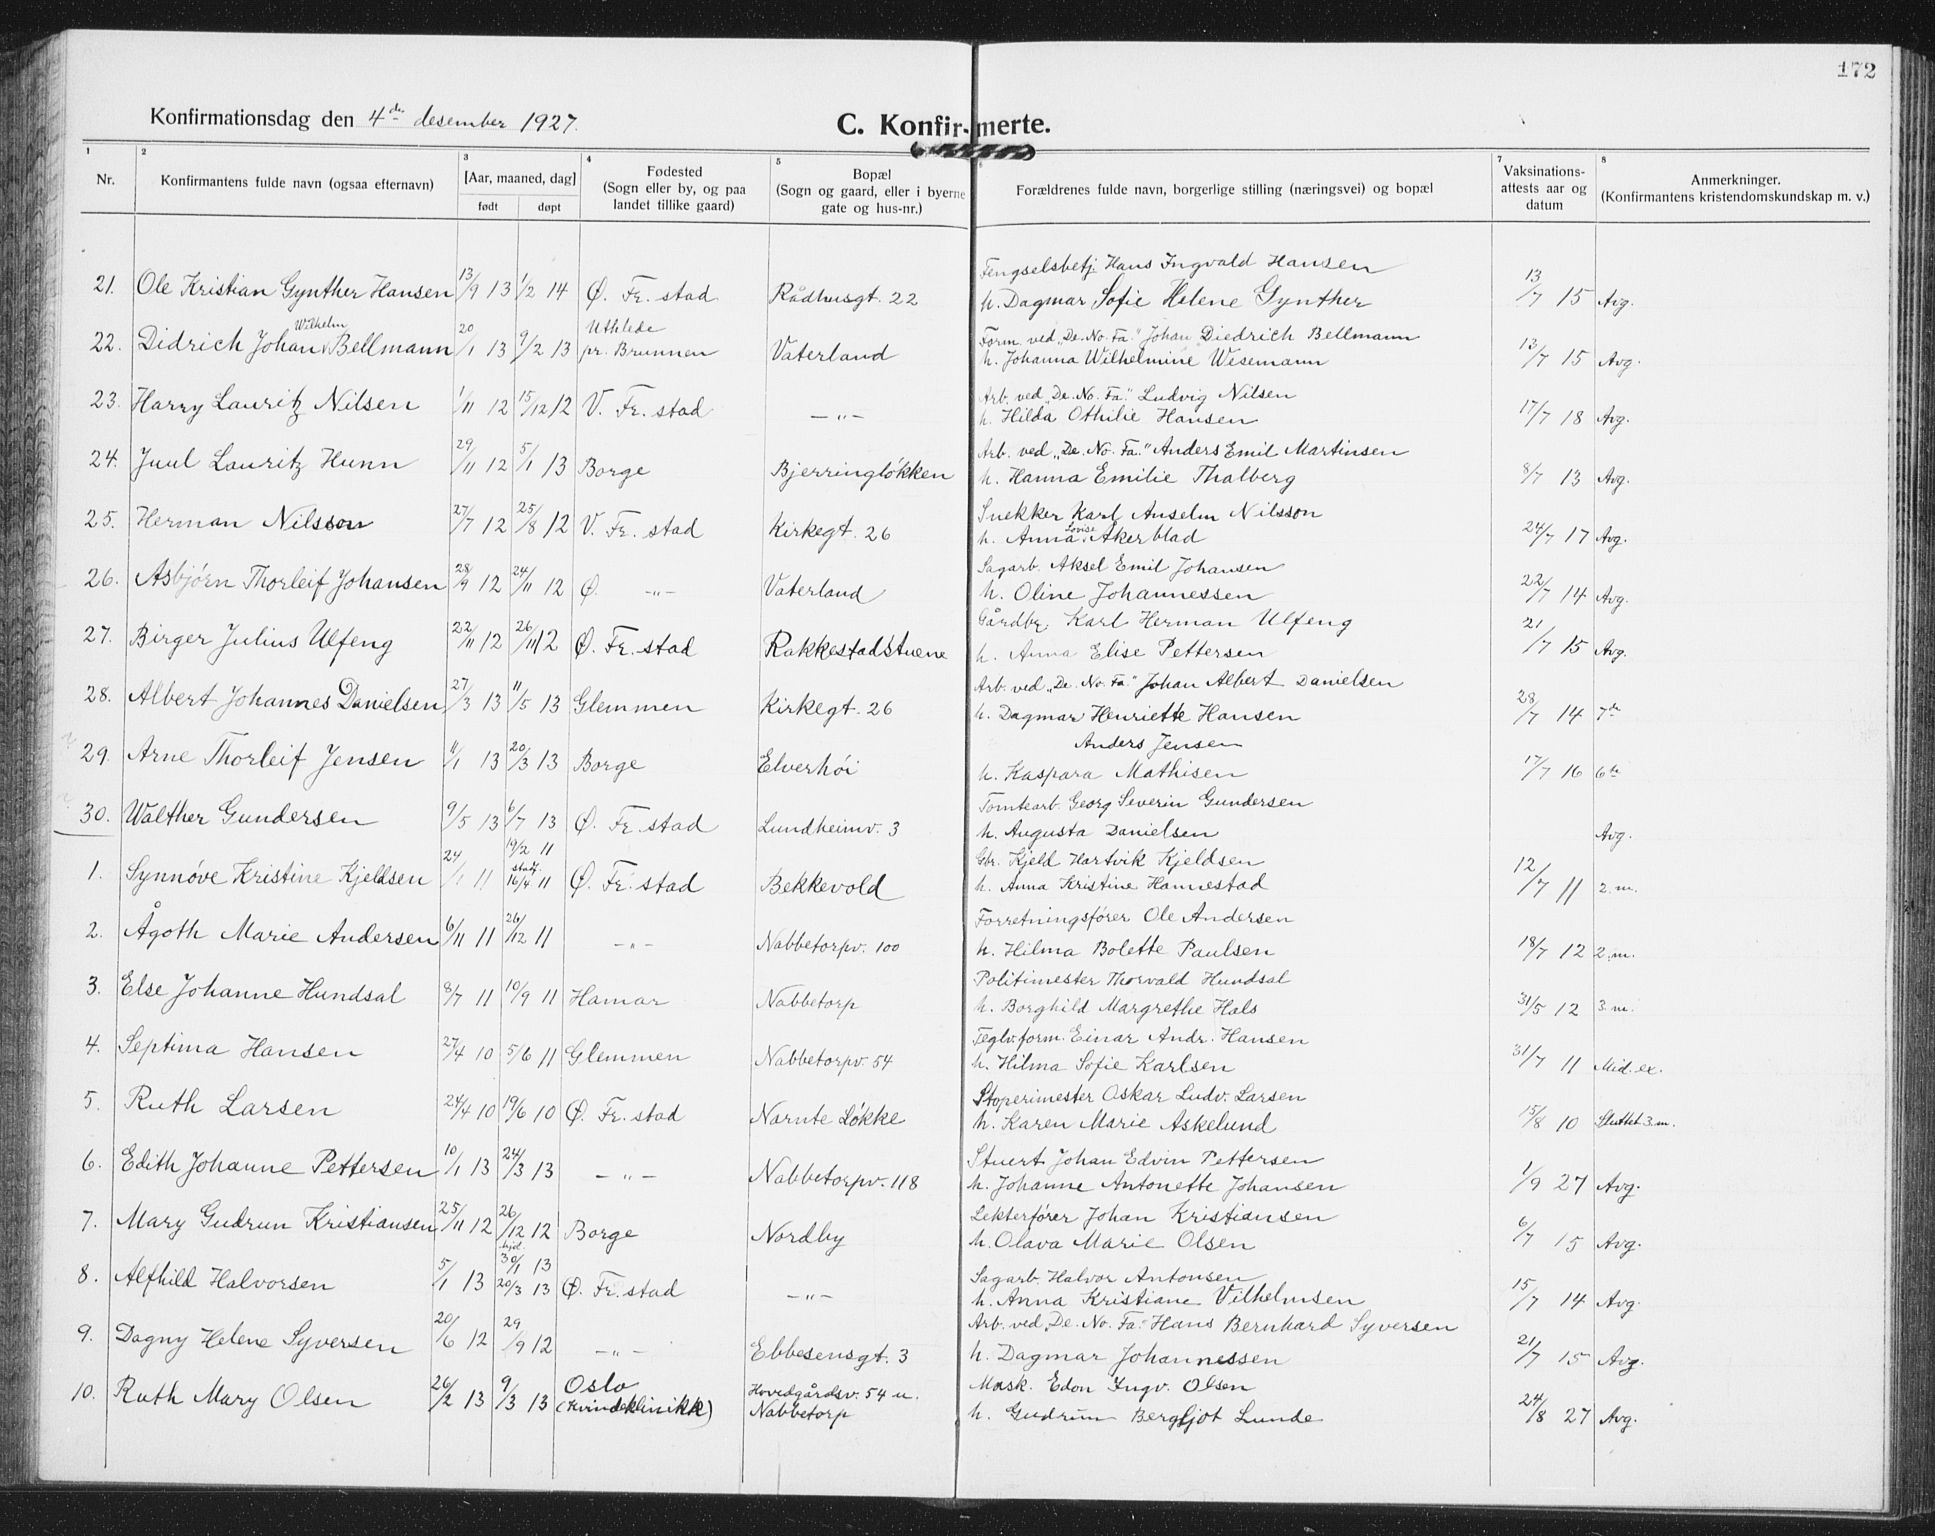 172
Konfirmationsdag den 4de desember 1927.
C. Konfirmerte.
1 2 3 4 5 7 8
Nr. Konfirmantens fulde navn (ogsaa efternavn) [Aar, maaned, dag] født døpt Fødested (Sogn eller by, og paa landet tillike gaard) Bopæl (Sogn og gaard, eller i byerne gate og hus-nr.) Forældrenes fulde navn, borgerlige stilling (næringsvei) og bopæl Vaksinations-attests aar og datum Anmerkninger. (Konfirmantens kristendomskundskap m. v.)
Fengselsbetj. Hans Ingvald Hansen
21. Ole Kristian Gynther Hansen 13/9 13 1/2 14 Ø. Fr. stad Rådhusgt. 22 h. Dagmar Sofie Helene Gynther 13/7 15 Avg.
Wilhelm Uthlede Form. ved "De. No. Fa." Johan Diedrich Bellmann
22. Didrich Johan Bellmann 20/1 13 9/2 13 pr. Brunnen Vaterland h. Johanna Wilhelmine Wesemann 13/7 15 Avg.
Arb. ved "De. No. Fa." Ludvig Nilsen
23. Harry Lauritz Nilsen 1/11 12 15/12 12 V. Fr. stad —"— h. Hilda Othilie Hansen 17/7 18 Avg.
Arb. ved "De. No. Fa." Anders Emil Martinsen
24. Juul Lauritz Hunn 29/11 12 5/1 13 Borge Bjerringløkken h. Hanna Emilie Thalberg 8/7 13 Avg.
Snekker Karl Anselm Nilsson
25. Herman Nilsson 27/7 12 25/8 12 V. Fr. stad Kirkegt. 26 h. Anna Lovise Åkerblad 24/7 17 Avg.
Sagarb. Aksel Emil Johansen
26. Asbjørn Thorleif Johansen 28/9 12 24/11 12 Ø. —"— Vaterland h. Oline Johannessen 22/7 14 Avg.
Gårdbr. Karl Herman Ulfeng
27. Birger Julius Ulfeng 22/11 12 26/11 12 Ø. Fr. stad Rakkestadstuene h. Anna Elise Pettersen 21/7 15 Avg.
Arb. ved "De. No. Fa." Johan Albert Danielsen
28. Albert Johannes Danielsen 27/3 13 11/5 13 Glemmen Kirkegt. 26 h. Dagmar Henriette Hansen 28/7 14 7de
Anders Jensen
29. Arne Thorleif Jensen 11/1 13 20/3 13 Borge Elverhøi h. Kaspara Mathisen 17/7 16 6te
Tomtearb. Georg Severin Gundersen
30. Walther Gundersen 9/5 13 6/7 13 Ø. Fr. stad Lundheimv. 3 h. Augusta Danielsen Avg.
19/2 11 Gbr. Kjeld Hartvik Kjeldsen
1. Synnøve Kristine Kjeldsen 24/1 11 stadf. 16/4 11 Ø. Fr. stad Bekkevold h. Anna Kristine Hannestad 12/7 11 2. m.
Forretningsfører Ole Andersen
2. Ågoth Marie Andersen 6/11 11 26/12 11 —"— Nabbetorpv. 100 h. Hilma Bolette Paulsen 18/7 12 2. m.
Politimester Thorvald Hundsal
3. Else Johanne Hundsal 8/7 11 10/9 11 Hamar Nabbetorp h. Borghild Margrethe Hals 31/5 12 3. m.
Teglv.form. Einar Andr. Hansen
4. Septima Hansen 27/4 10 5/6 11 Glemmen Nabbetorpv. 54 h. Hilma Sofie Karlsen 31/7 11 Mid. ex.
Stoperimester Oskar Ludv. Larsen
5. Ruth Larsen 24/4 10 19/6 10 Ø. Fr. stad Narnte Løkke h. Karen Marie Askelund 15/8 10 Sluttet 3. m.
Stuert Johan Edvin Pettersen
6. Edith Johanne Pettersen 10/1 13 24/3 13 —"— Nabbetorpv. 118 h. Johanne Antonette Johansen 1/9 27 Avg.
Lekterfører Johan Kristiansen
7. Mary Gudrun Kristiansen 25/11 12 26/12 12 Borge Nordby h. Olava Marie Olsen 6/7 15 Avg.
hjd. 30/1 13 Sagarb. Halvor Antonsen
8. Alfhild Halvorsen 5/1 13 20/3 13 Ø. Fr. stad —"— h. Anna Kristiane Vilhelmsen 15/7 14 Avg.
Arb. ved "De. No. Fa." Hans Bernhard Syversen
9. Dagny Helene Syversen 20/6 12 29/9 12 —"— Ebbesensgt. 3 h. Dagmar Johannessen 21/7 15 Avg.
Oslo Hovedgårdsv. 54 u. Mask. Edon Ingv. Olsen
10. Ruth Mary Olsen 26/2 13 9/3 13 (Kvindeklinikk) Nabbetorp h. Gudrun Bergljot Lunde 24/8 27 Avg.